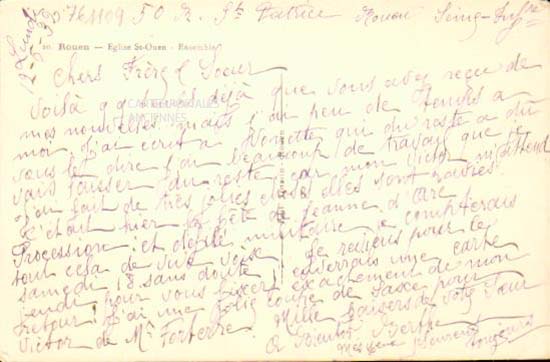 761109 50 R. St Patrice Rouen Seine-Infre
Lundi
12-5-30
20. Rouen — Eglise St-Ouen - Ensemble
Chers Frère & Soeur
Voilà qq jours déjà que vous avez reçu de
mes nouvelles, mais j'ai peu de temps à
moi, j'ai écrit à qui du reste a dû
vous le dire j'ai beaucoup de travail que je
vais laisser du reste, car mon Victor m'attend
j'ai fait de très jolies choses elles sont ravies
C'était hier la fête de Jeanne d'Arc
Procession et défilé militaire je compterais
tout cela de vive voix Je reviens pour le
samedi 18 sans doute j'enverrais une carte
jeudi pour vous fixer exactement de mon
retour j'ai une jolie coupe de pour
Victor de Mr Forterre Mille baisers de votre Soeur
A bientôt Berthe
CARTES POSTALES
ANCIENNES